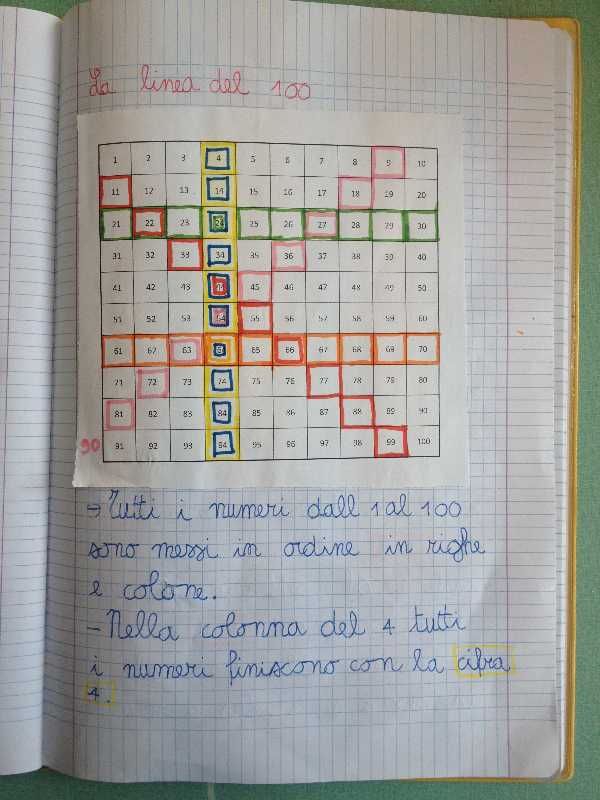 La linea del 100
1 2 3 4 5 6 7 8 9 10
11 12 13 14 15 16 17 18 19 20
21 22 23 24 25 26 27 28 29 30
31 32 33 34 35 36 37 38 39 40
41 42 43 45 46 47 48 49 50
51 52 53 54 55 56 57 58 59 60
61 62 63 65 66 67 68 69 70
71 72 73 74 75 76 77 78 79 80
81 82 83 84 85 86 87 88 89 90
90 91 92 93 94 95 96 97 98 99 100
→ Tutti i numeri dall 1 al 100
sono messi in ordine in righe
e colone.
- Nella colonna del 4 tutti
i numeri finiscono con la cifra
4.